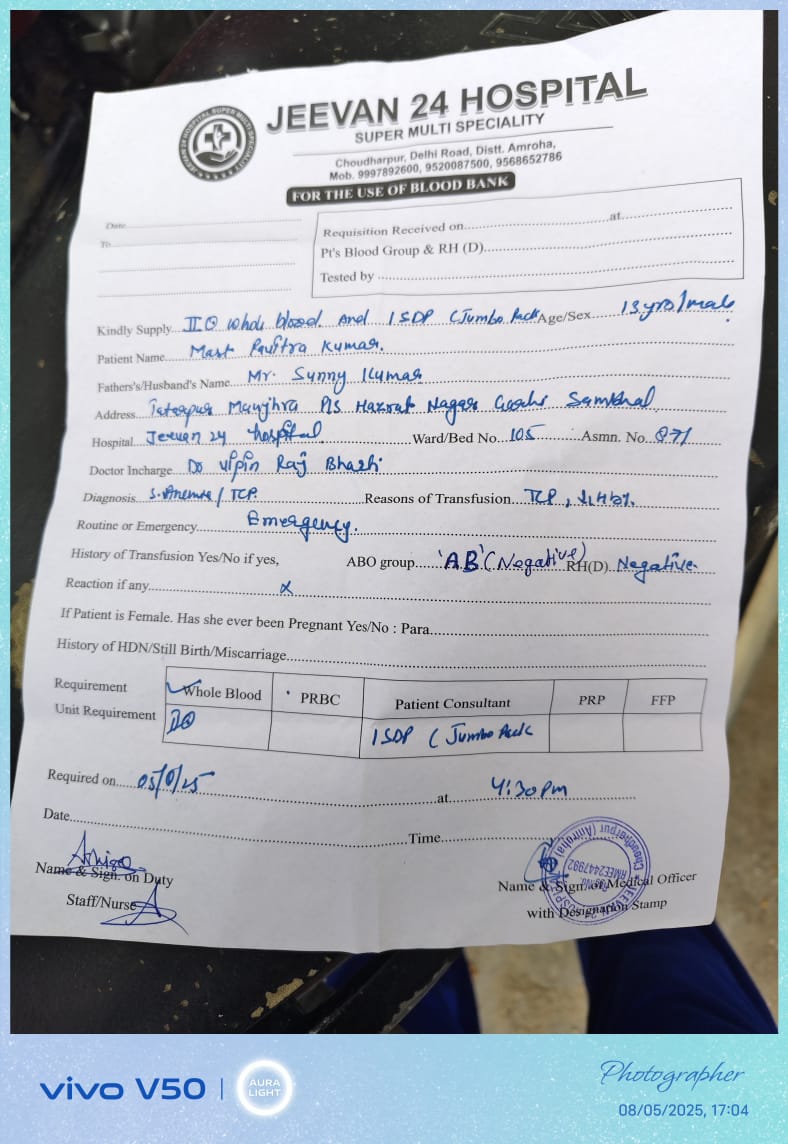 JEEVAN 24 HOSPITAL
SUPER MULTI SPECIALITY
Choudharpur, Delhi Road, Distt. Amroha,
Mob. 9997892600, 9520087500, 9568652786
FOR THE USE OF BLOOD BANK
Date
To
Requisition Received on at
Pt's Blood Group & RH (D)
Tested by
Kindly Supply whole blood. And 1 SDP (Jumbo Pack Age/Sex 13 yrs/male
Patient Name Mast Pavitra Kumar.
Fathers's/Husband's Name Mr. Sunny Kumar
Address Manjhra P/s Hazrat Nagar Sambhal
Hospital Jeevan 24 hospital Ward/Bed No. 105 Asmn. No. 871
Doctor Incharge Dr Vipin Raj Bharti
Diagnosis S. Anemia / TCP. Reasons of Transfusion TCP,
Routine or Emergency Emergency.
History of Transfusion Yes/No if yes, ABO group 'AB' (Negative) RH(D) Negative
Reaction if any x
If Patient is Female. Has she ever been Pregnant Yes/No : Para
History of HDN/Still Birth/Miscarriage
Requirement Whole Blood PRBC Patient Consultant PRP FFP
Unit Requirement 1 SDP (Jumbo Pack
Required on at 4:30 pm
Date Time
Name & Sign. on Duty
Staff/Nurse
Name & Sign. of Medical Officer
with Designation Stamp
Choudharpur (Amroha)
Reg. No.
RMEE2447992
vivo V50 | AURA LIGHT
Photographer
08/05/2025, 17:04